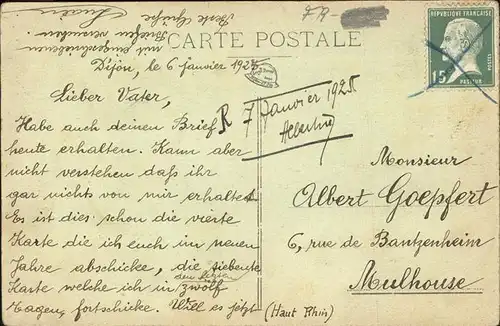 Beste Grüße
Lucien
mit eingeschriebenen
Briefen
CARTE POSTALE
RÉPUBLIQUE FRANÇAISE
15
POSTES
PASTEUR
Dijon, le 6 janvier 1925
Lieber Vater,
Habe auch deinen Brief
heute erhalten. Kann aber
nicht verstehen daß ihr
gar nichts von mir erhaltet
Es ist dies schon die vierte
Karte die ich euch im neuen
Jahre abschicke, die siebente
den letzten
Karte welche ich in zwölf
Tagen, fortschicke. Will es jetzt
R 7 Janvier 1925
Monsieur
Albert Goepfert
6, rue de Bantzenheim
Mulhouse
(Haut Rhin)